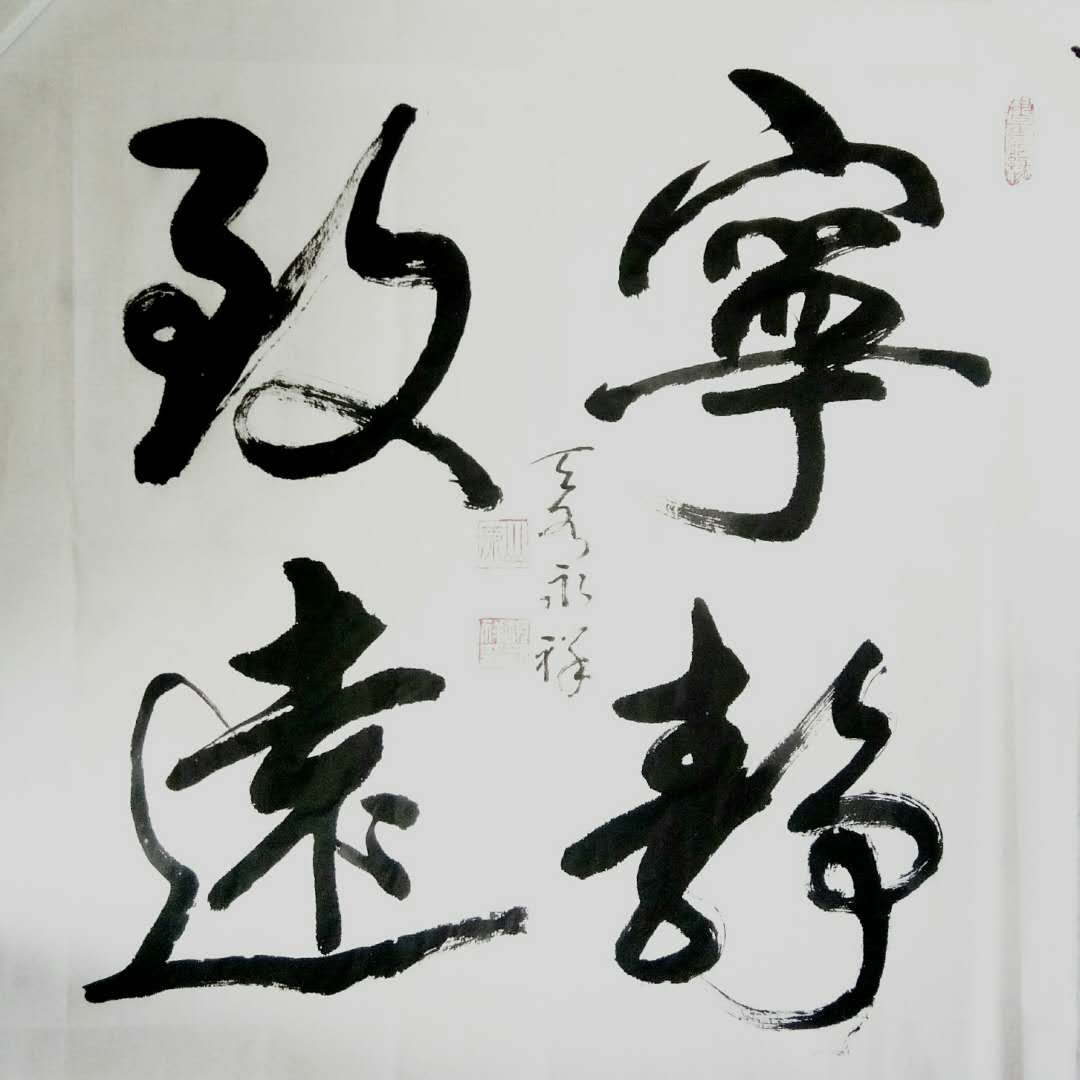 寧靜
致遠
永祥